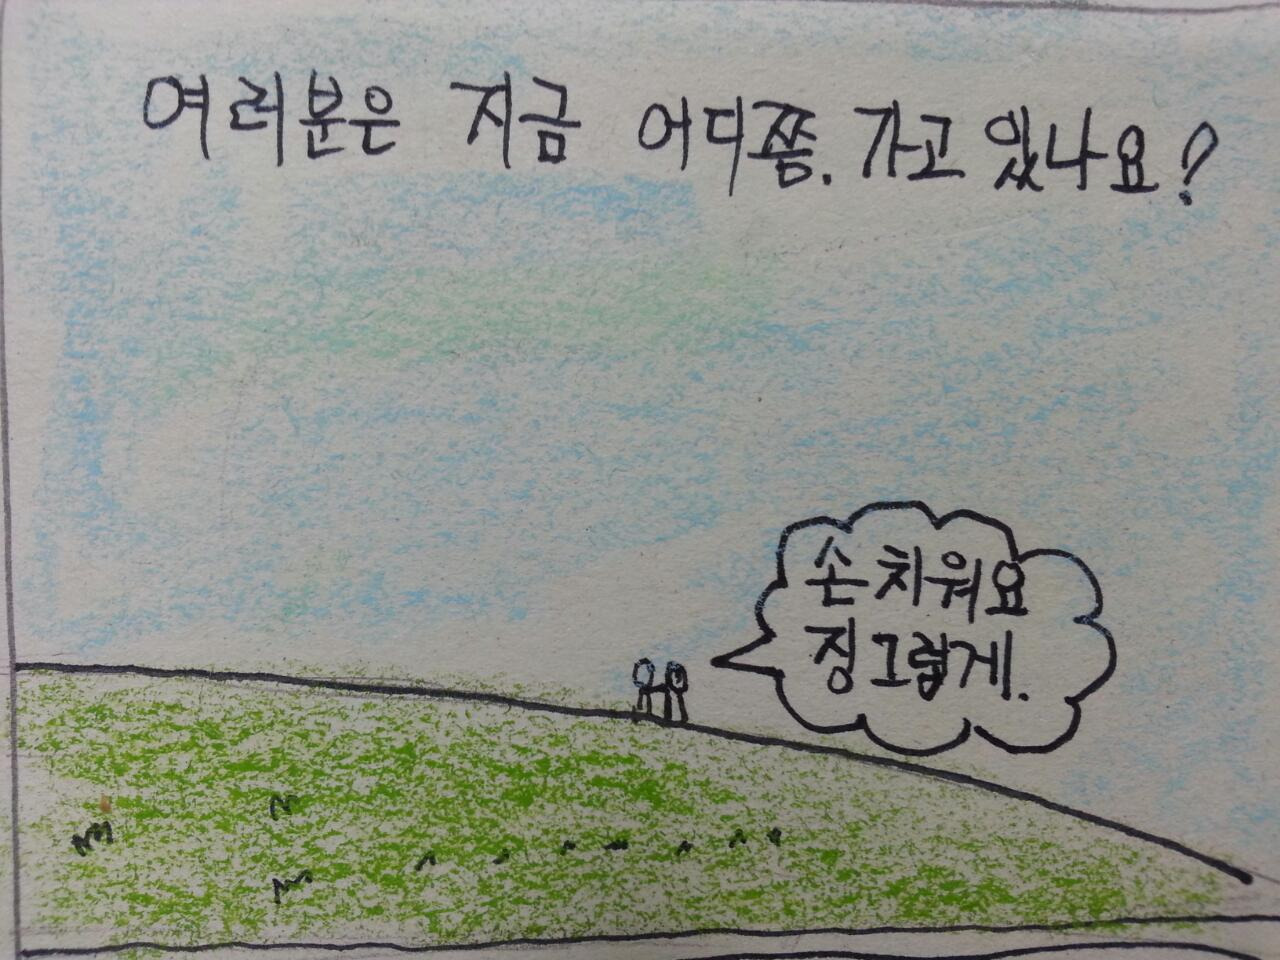 여러분은 지금 어디쯤. 가고 있나요?
손 치워요
징그럽게.